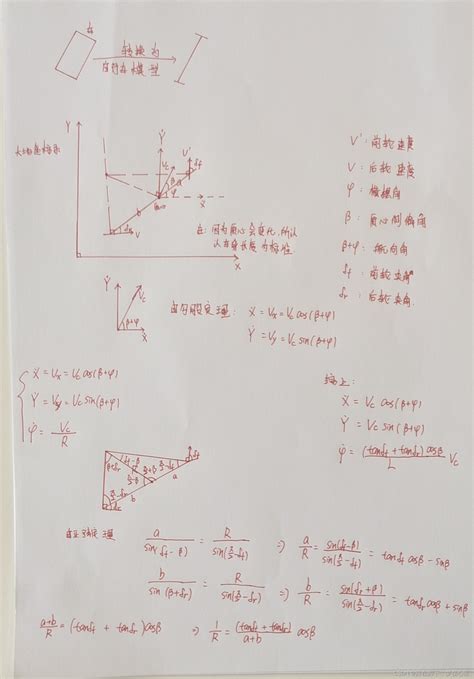 车
转换为
自行车模型
Y
大地坐标系
X
Ẏ
V'
Vc
δf
β
a
φ
b
δr
V
注：因为质心会变化，所以
认为车长度
V'：前轮速度
V：后轮速度
φ：横摆角
β：质心侧偏角
β+φ：航向角
δf：前轮转角
δr：后轮转角
Ẏ
Vc
β+φ
Ẋ
由勾股定理：Ẋ = Vx = Vc cos(β+φ)
Ẏ = Vy = Vc sin(β+φ)
Ẋ = Vx = Vc cos(β+φ)
Ẏ = Vy = Vc sin(β+φ)
φ̇ = Vc/R
综上：
Ẋ = Vc cos(β+φ)
Ẏ = Vc sin(β+φ)
φ̇ = (tanδf + tanδr) cosβ / L Vc
a
b
由正弦定理 a/sin(δf-β) = R/sin(π/2-δf) ⇒ a/R = sin(δf-β)/sin(π/2-δf) = tanδf cosβ - sinβ
b/sin(β+δr) = R/sin(π/2-δr) ⇒ b/R = sin(δr+β)/sin(π/2-δr) = tanδr cosβ + sin
a+b/R = (tanδf + tanδr) cosβ ⇒ 1/R = (tanδf + tanδr)/a+b cosβ